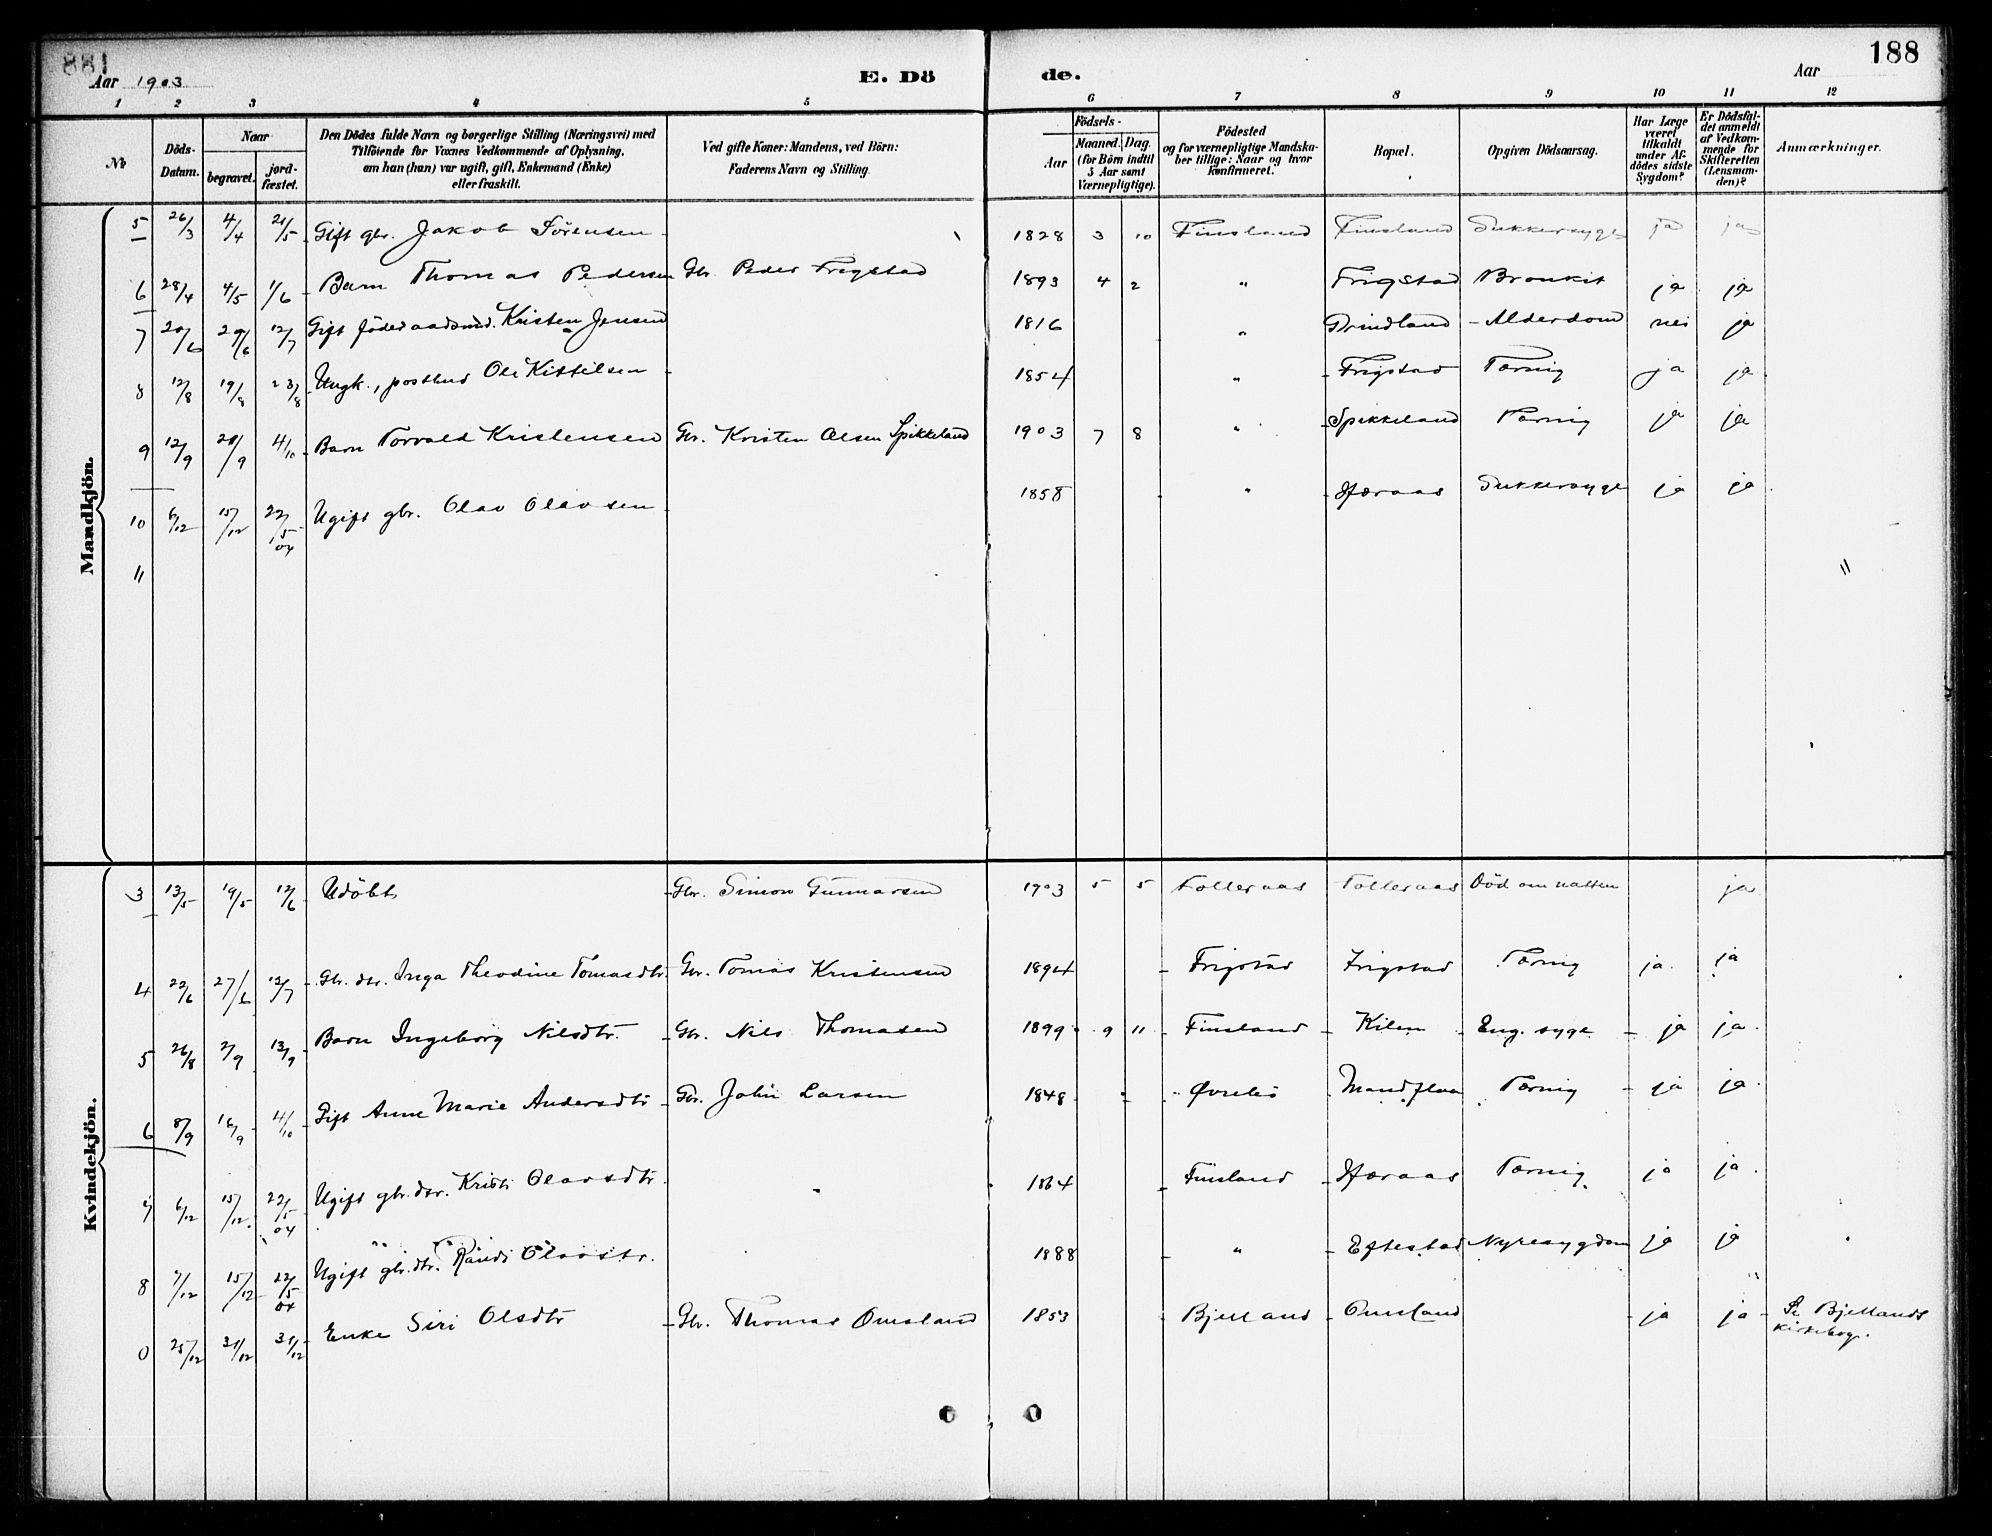 188
Aar 1903
E. Dö de.
Aar
1 2 3 4 5 6 7 8 9 10 11 12
No
Döds-Datum.
Naar
begravet.
jord-fæstet.
Den Dödes fulde Navn og borgerlige Stilling (Næringsvei) med
Tilföiende for Voxnes Vedkommende af Oplysning,
om han (hun) var ugift, gift, Enkemand (Enke)
eller fraskilt.
Ved gifte Koner: Mandens, ved Börn:
Faderens Navn og Stilling.
Födsels-
Aar
Maaned. Dag.
(for Börn indtil
5 Aar samt
Værnepligtige).
Födested
og for værnepligtige Mandska-
ber tillige: Naar og hvor
konfirmeret.
Bopæl.
Opgiven Dödsaarsag.
Har Læge
været
tilkaldt
under Af-
dödes sidste
Sygdom?
Er Dödsfal-
det anmeldt
af Vedkom-
mende for
Skifteretten
(Lensman-
den)?
Anmærkninger.
Mandkjön.
5 26/3 4/4 21/5 Gift gbr. Jakob Sörensen 1828 3 10 Finsland Finsland Sukkersyge ja ja
6 28/4 4/5 1/6 Barn Thomas Pedersen Gbr. Peder Frigstad 1893 4 2 " Frigstad Bronkit ja ja
7 20/6 29/6 12/7 Gift föderaadsmd. Kristen Jensen 1816 " Grindland Alderdom nei ja
8 12/8 19/8 23/8 Ungk., postbud Ole Kittilsen 1854 " Frigstad Tæring ja ja
9 12/9 20/9 4/10 Barn Torvald Kristensen Gbr. Kristen Olsen Spikkeland 1903 7 8 " Spikkeland Tæring ja ja
10 6/12 15/12 22/5 04 Ugift gbr. Olav Olavsen 1858 " Hæraas Sukkersyge ja ja
11 "
Kvindekjön.
3 13/5 19/5 12/6 Udöbt Gbr. Simon Gunnarsen 1903 5 5 Folleraas Folleraas Död om natten ja
4 22/6 27/6 12/7 Gbr. dtr. Inga Theodine Tomasdtr. Gbr. Tomas Kristensen 1894 Frigstad Frigstad Tæring ja ja
5 26/8 2/9 13/9 Barn Ingeborg Nilsdtr. Gbr. Nils Thomasen 1899 9 11 Finsland Kilen Eng. syge ja ja
6 8/9 16/9 4/10 Gift Anne Marie Andersdtr Gbr. John Larsen 1848 Øvrebö Mandflaa Tæring ja ja
7 6/12 15/12 22/5 04 Ugift gbr. dtr. Kristi Olavsdtr. 1864 Finsland Hæraas Tæring ja ja
8 7/12 15/12 22/5 04 Ugift gbr. dtr. Randi Olavsdtr. 1888 " Eftestad Nyresygdom ja ja
0 25/12 31/12 31/12 Enke Siri Olsdtr Gbr. Thomas Omsland 1853 Bjelland Omsland ja ja Se Bjellands
kirkebog.